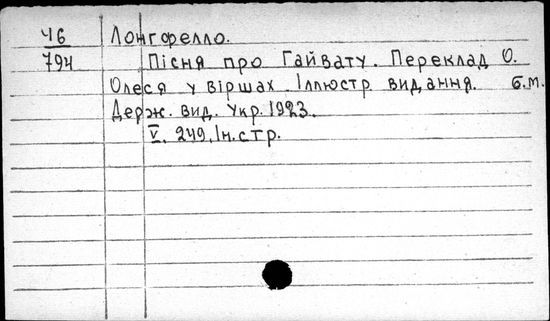 Ч6 Лонгфелло.
794 Пісня про Гайвату. Переклад О.
Олеся у віршах. Іллюстр видання. б.м.
Держ. вид. Укр. 1923.
V. 249. Ін. стр.